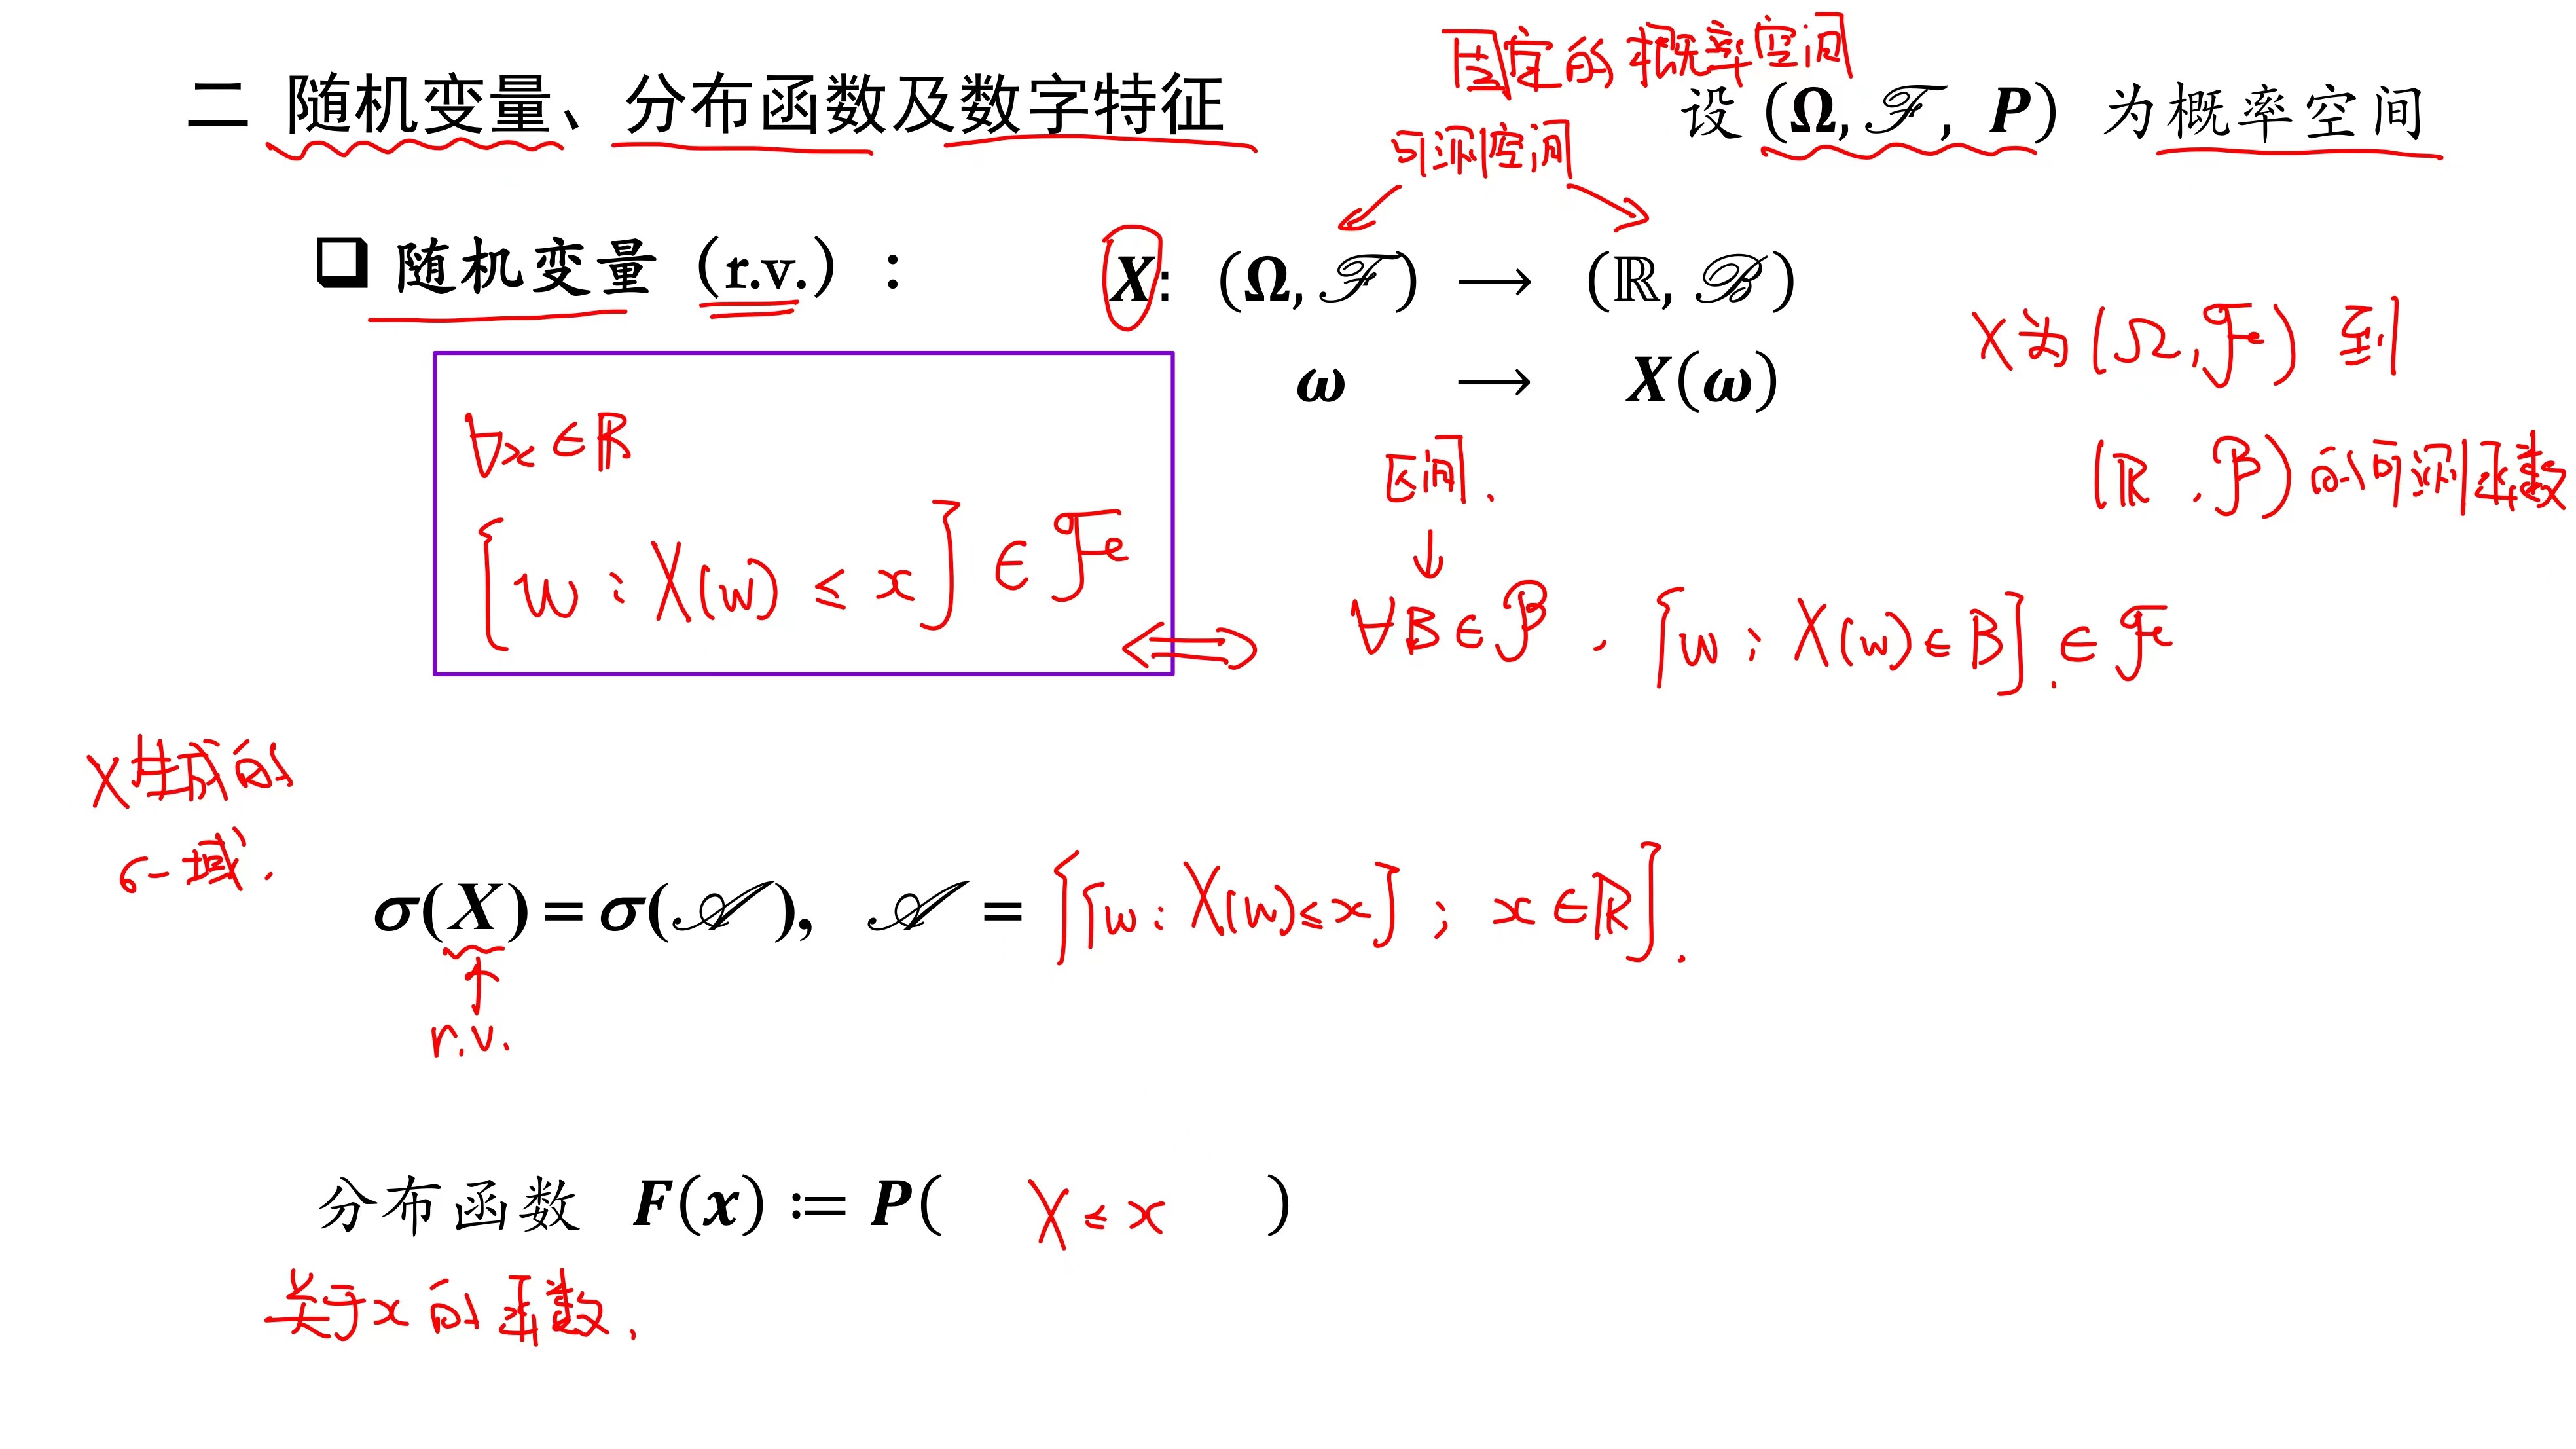 固定的概率空间
二 随机变量、分布函数及数字特征 设(Ω, ℱ, P) 为概率空间
可测空间
❑ 随机变量（r.v.）： X: (Ω, ℱ) ⟶ (ℝ, ℬ)
ω ⟶ X(ω)
X为(Ω, ℱ) 到
(ℝ, ℬ) 的可测函数
∀x∈ℝ
{w : X(w) ≤ x} ∈ ℱ
区间.
↓
⟺ ∀B∈ℬ, {w : X(w)∈B}. ∈ ℱ
X生成的
σ-域.
σ(X) = σ(𝒜), 𝒜 = {{w : X(w)≤x} ; x∈ℝ}.
↑
r.v.
分布函数 F(x) := P( X ≤ x )
关于x的函数.